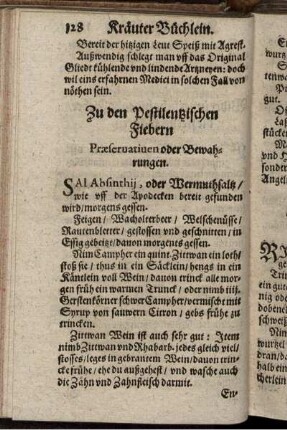 128 Kräuter Büchlein.
Bereit der hitzigen Leut Speiß mit Agrest.
Außwendig schlegt man vff das Original
Gliedt kühlende vnd lindende Artzneyen: doch
wil eins erfahrnen Medici in solchen Fall von
nöthen sein.
Zu den Pestilentzischen
Fiebern
Præservativen oder Bewah-
rungen.
SAl Absinthij, oder Wermuthsaltz/
wie vff der Apotecken bereit gefunden
wird/morgens gessen.
Feigen/ Wacholterbeer/ Welschenüsse/
Rautenbletter/ gestossen vnd geschnitten/ in
Essig gebeitzt/davon morgens gessen.
Nim Campher ein quint. Zittwan ein loth/
stoß sie/ thus in ein Säcklein/ hengs in ein
Känlein voll Wein/davon trinck alle mor-
gen früh ein warmen Trunck/ oder nimb iiij.
Gerstenkörner schwer Campher/vermische mit
Syrup von sauwern Citron/ gebs frühe zu
trincken.
Zittwan Wein ist auch sehr gut: Item
nimb Zittwan vnd Rhabarb. jedes gleich viel/
stosses/leges in gebrantem Wein/davon trin-
cke frühe/ ehe du außgehest/ vnd wasche auch
die Zähn vnd Zahnfleisch darmit.
En-